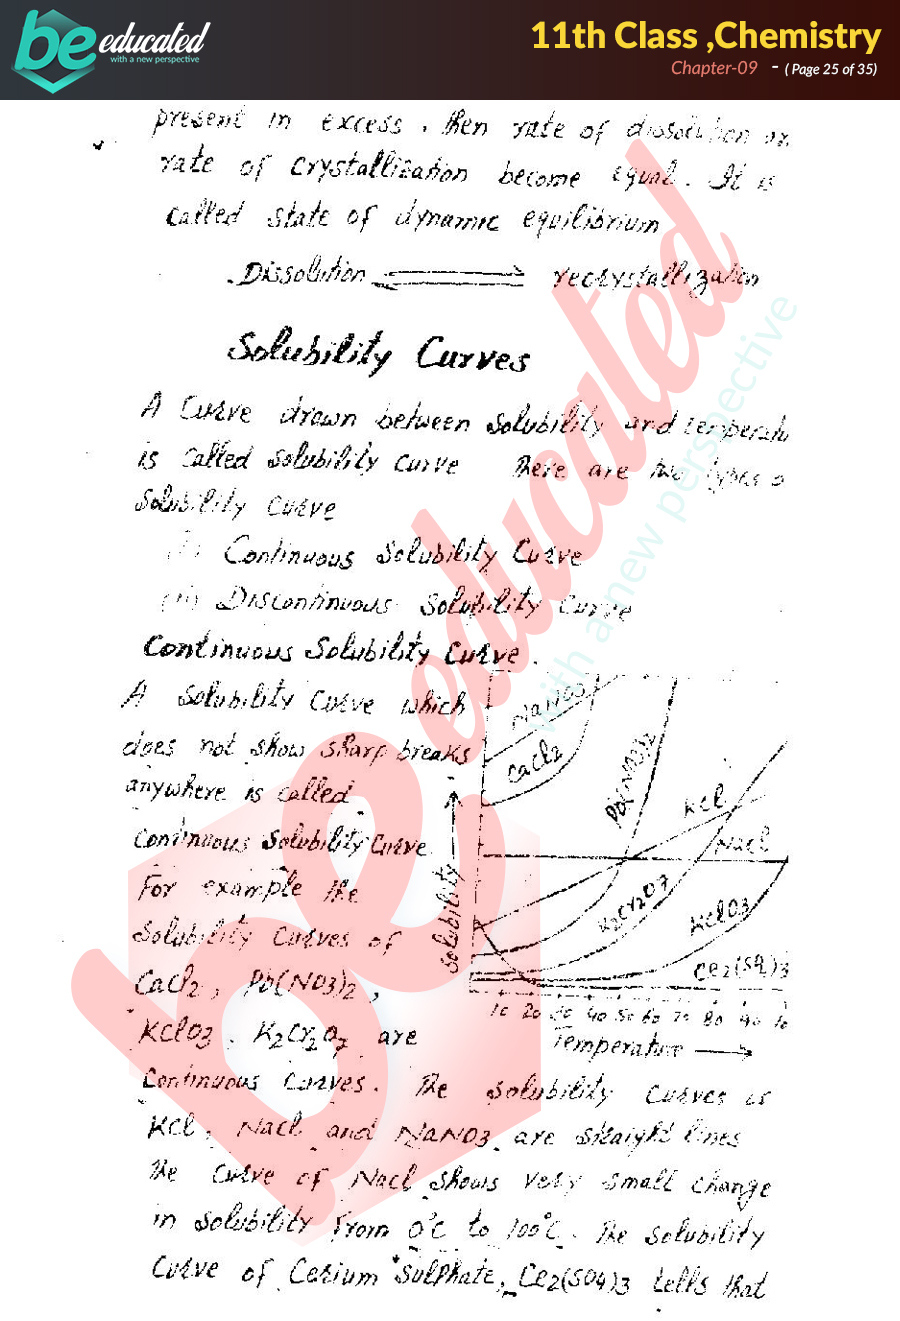 be educated
with a new perspective
11th Class ,Chemistry
Chapter-09 - ( Page 25 of 35)
present in excess, then rate of dissolution
rate of crystallization become equal. It is
called state of dynamic equilibrium
Dissolution ⇌ recrystallization
Solubility Curves
A Curve drawn between solubility and temperatu
is called solubility curve There are two types o
Solubility curve
(i) Continuous Solubility Curve
(ii) Discontinuous Solubility Curve
Continuous Solubility Curve.
A solubility curve which
does not show sharp breaks
anywhere is called
continuous solubility curve
For example the
solubility curves of
CaCl2, Pb(NO3)2,
KClO3, K2Cr2O7 are
NaNO3
CaCl2
Pb(NO3)2
KCl
NaCl
K2Cr2O7
KClO3
Ce2(SO4)3
Solubility
10 20 30 40 50 60 70 80 90 10
Temperature
Continuous Curves. The solubility curves of
KCl, NaCl and NaNO3 are straight lines
The curve of NaCl shows very small change
in solubility from 0°C to 100°C. The solubility
curve of Cerium Sulphate, Ce2(SO4)3 tells that
be educated
with a new perspective